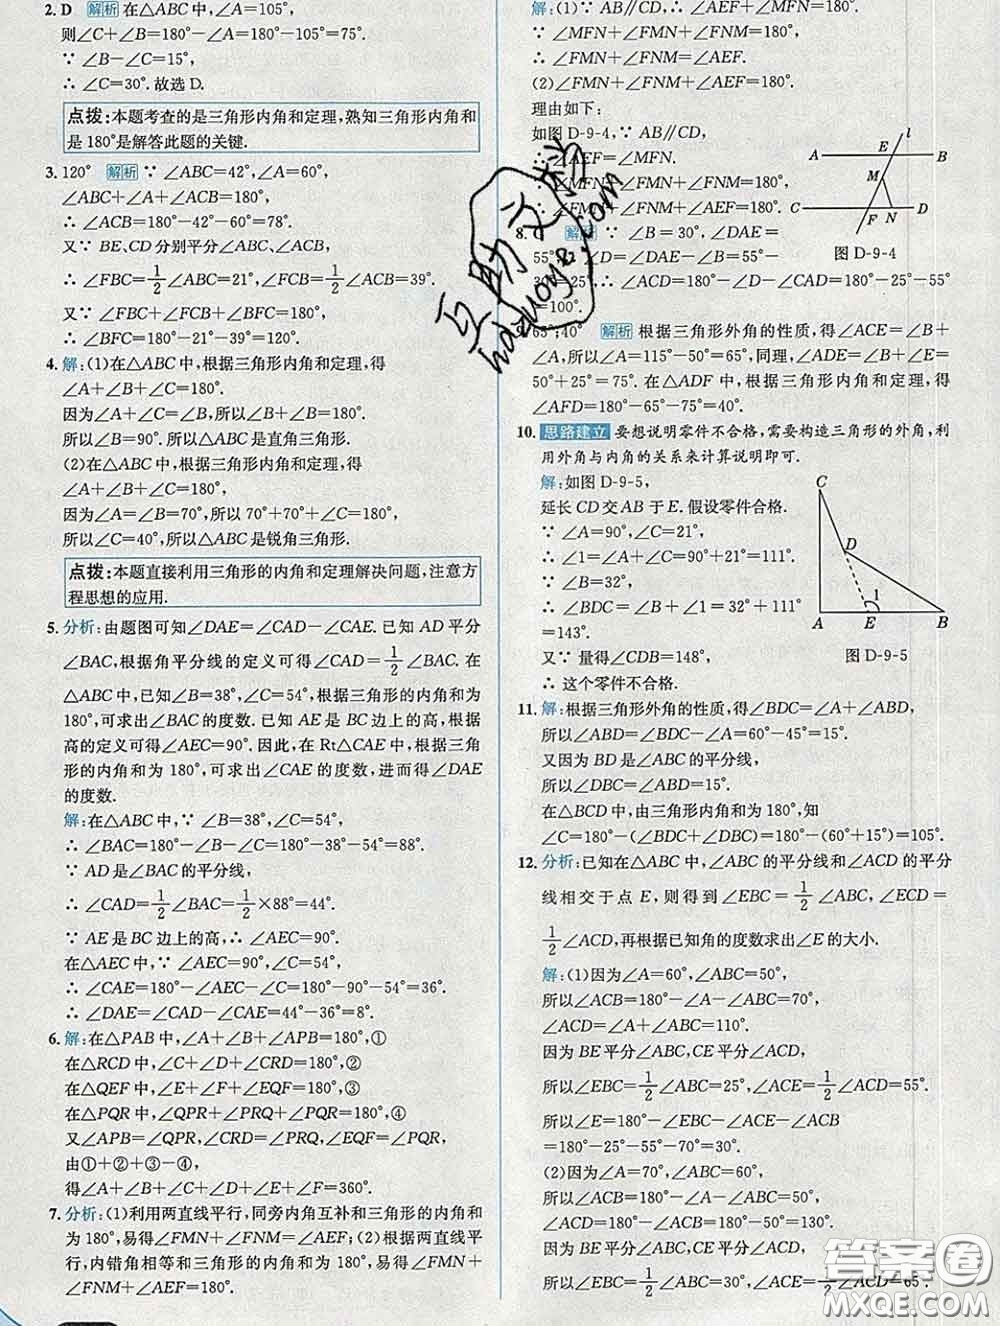 2. D 解析 在△ABC中,根据三角形内角和定理,
则∠C+∠B=180°-∠A=180°-105°=75°.
∵ ∠B-∠C=15°,
∴ ∠C=30°. 故选D.
点拨:本题考查的是三角形内角和定理,熟知三角形内角和
是180°是解答此题的关键.
3. 120° 解析 ∵ ∠ABC=42°,∠A=60°,
∠ABC+∠A+∠ACB=180°,
∴ ∠ACB=180°-42°-60°=78°.
又∵ BE、CD分别平分∠ABC、∠ACB,
∴ ∠FBC=1/2∠ABC=21°,∠FCB=1/2∠ACB=39°.
又∵ ∠BFC+∠FBC+∠FCB=180°,
∴ ∠BFC=180°-21°-39°=120°.
4. 解:(1)在△ABC中,根据三角形内角和定理,得
∠A+∠B+∠C=180°.
因为∠A+∠C=∠B,所以∠B+∠B=180°.
所以∠B=90°.所以△ABC是直角三角形.
(2)在△ABC中,根据三角形内角和定理,得
∠A+∠B+∠C=180°,
因为∠A=∠B=70°,所以70°+70°+∠C=180°,
所以∠C=40°,所以△ABC是锐角三角形.
点拨:本题直接利用三角形的内角和定理解决问题,注意方
程思想的应用.
5. 分析:由题图可知∠DAE=∠CAD-∠CAE. 已知AD平分
∠BAC,根据角平分线的定义可得∠CAD=1/2∠BAC. 在
△ABC中,已知∠B=38°,∠C=54°,根据三角形的内角和为
180°,可求出∠BAC的度数. 已知AE是BC边上的高,根据
高的定义可得∠AEC=90°. 因此,在Rt△CAE中,根据三角
形的内角和为180°,可求出∠CAE的度数,进而得∠DAE
的度数.
解:在△ABC中,∵ ∠B=38°,∠C=54°,
∴ ∠BAC=180°-∠B-∠C=180°-38°-54°=88°.
∵ AD是∠BAC的平分线,
∴ ∠CAD=1/2∠BAC=1/2×88°=44°.
∵ AE是BC边上的高,∴ ∠AEC=90°.
在△AEC中,∵ ∠AEC=90°,∠C=54°,
∴ ∠CAE=180°-∠AEC-∠C=180°-90°-54°=36°.
∴ ∠DAE=∠CAD-∠CAE=44°-36°=8°.
6. 解:在△PAB中,∠A+∠B+∠APB=180°,①
在△RCD中,∠C+∠D+∠CRD=180°,②
在△QEF中,∠E+∠F+∠EQF=180°,③
在△PQR中,∠QPR+∠PRQ+∠PQR=180°,④
又∠APB=∠QPR,∠CRD=∠PRQ,∠EQF=∠PQR,
由①+②+③-④,
得∠A+∠B+∠C+∠D+∠E+∠F=360°.
7. 分析:(1)利用两直线平行,同旁内角互补和三角形的内角和
为180°,易得∠FMN+∠FNM=∠AEF;(2)根据两直线平
行,内错角相等和三角形的内角和为180°,易得∠FMN+
∠FNM+∠AEF=180°.
解:(1)∵ AB∥CD,∴ ∠AEF+∠MFN=180°.
∵ ∠MFN+∠FMN+∠FNM=180°,
∴ ∠FMN+∠FNM=∠AEF.
(2)∠FMN+∠FNM+∠AEF=180°.
理由如下:
如图D-9-4,∵ AB∥CD,
∴ ∠AEF=∠MFN.
∵ ∠MFN+∠FMN+∠FNM=180°,
∴ ∠FMN+∠FNM+∠AEF=180°.
l
A E B
M
C F N D
图D-9-4
8. C 解析 ∵ ∠B=30°,∠DAE=
55°,∴ ∠D=∠DAE-∠B=55°-
30°=25°,∴ ∠ACD=180°-∠D-∠CAD=180°-25°-55°
=100°.
9. 65°;40° 解析 根据三角形外角的性质,得∠ACE=∠B+
∠A,所以∠A=115°-50°=65°,同理,∠ADE=∠B+∠E=
50°+25°=75°. 在△ADF中,根据三角形内角和定理,得
∠AFD=180°-65°-75°=40°.
10. 思路建立 要想说明零件不合格,需要构造三角形的外角,利
用外角与内角的关系来计算说明即可.
解:如图D-9-5,
延长CD交AB于E. 假设零件合格.
∵ ∠A=90°,∠C=21°,
∴ ∠1=∠A+∠C=90°+21°=111°.
∵ ∠B=32°,
∴ ∠BDC=∠B+∠1=32°+111°
=143°.
又∵ 量得∠CDB=148°,
∴ 这个零件不合格.
C
D
1
A E B
图D-9-5
11. 解:根据三角形外角的性质,得∠BDC=∠A+∠ABD,
所以∠ABD=∠BDC-∠A=60°-45°=15°.
又因为BD是∠ABC的平分线,
所以∠DBC=∠ABD=15°.
在△BCD中,由三角形内角和为180°,知
∠C=180°-(∠BDC+∠DBC)=180°-(60°+15°)=105°.
12. 分析:已知在△ABC中,∠ABC的平分线和∠ACD的平分
线相交于点E,则得到∠EBC=1/2∠ABC,∠ECD=
1/2∠ACD,再根据已知角的度数求出∠E的大小.
解:(1)因为∠A=60°,∠ABC=50°,
所以∠ACB=180°-∠A-∠ABC=70°,
∠ACD=∠A+∠ABC=110°.
因为BE平分∠ABC,CE平分∠ACD,
所以∠EBC=1/2∠ABC=25°,∠ACE=1/2∠ACD=55°.
所以∠E=180°-∠EBC-∠ACE-∠ACB
=180°-25°-55°-70°=30°.
(2)因为∠A=70°,∠ABC=60°,
所以∠ACB=180°-∠A-∠ABC=50°,
所以∠ACD=180°-∠ACB=180°-50°=130°.
因为BE平分∠ABC,CE平分∠ACD,
所以∠EBC=1/2∠ABC=30°,∠ACE=1/2∠ACD=65°,
互助文档
huzuoye.com
答案圈
MXQE.COM